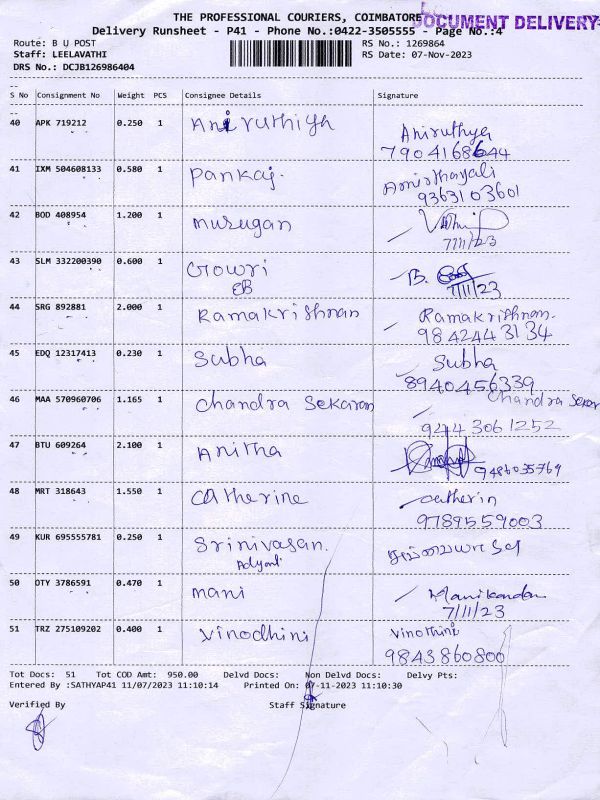 THE PROFESSIONAL COURIERS, COIMBATORE
DOCUMENT DELIVERY
Delivery Runsheet - P41 - Phone No.:0422-3505555 - Page No.:4
Route: B U POST RS No.: 1269864
Staff: LEELAVATHI RS Date: 07-Nov-2023
DRS No.: DCJB126986404
S No Consignment No Weight PCS Consignee Details Signature
40 APK 719212 0.250 1 Aniruthiya Aniruthya
7904168644
41 IXM 504608133 0.580 1 Pankaj. Amirthayali
9363103601
42 BOD 408954 1.200 1 murugan
7/11/23
43 SLM 332200390 0.600 1 Gowri B.
EB 7/11/23
44 SRG 892881 2.000 1 Ramakrishnan Ramakrishnan.
9842443134
45 EDQ 12317413 0.230 1 Subha Subha
8940456339
46 MAA 570960706 1.165 1 Chandra Sekaran Chandra Sekar
9444 3061252
47 BTU 609264 2.100 1 Anitha 9486035769
48 MRT 318643 1.550 1 Catherine catherin
9789559003
49 KUR 695555781 0.250 1 Srinivasan.
50 OTY 3786591 0.470 1 mani Manikandan
7/11/23
51 TRZ 275109202 0.400 1 Vinodhini Vinothini
9843860800
Tot Docs: 51 Tot COD Amt: 950.00 Delvd Docs: Non Delvd Docs: Delvy Pts:
Entered By :SATHYAP41 11/07/2023 11:10:14 Printed On: 07-11-2023 11:10:30
Verified By Staff Signature